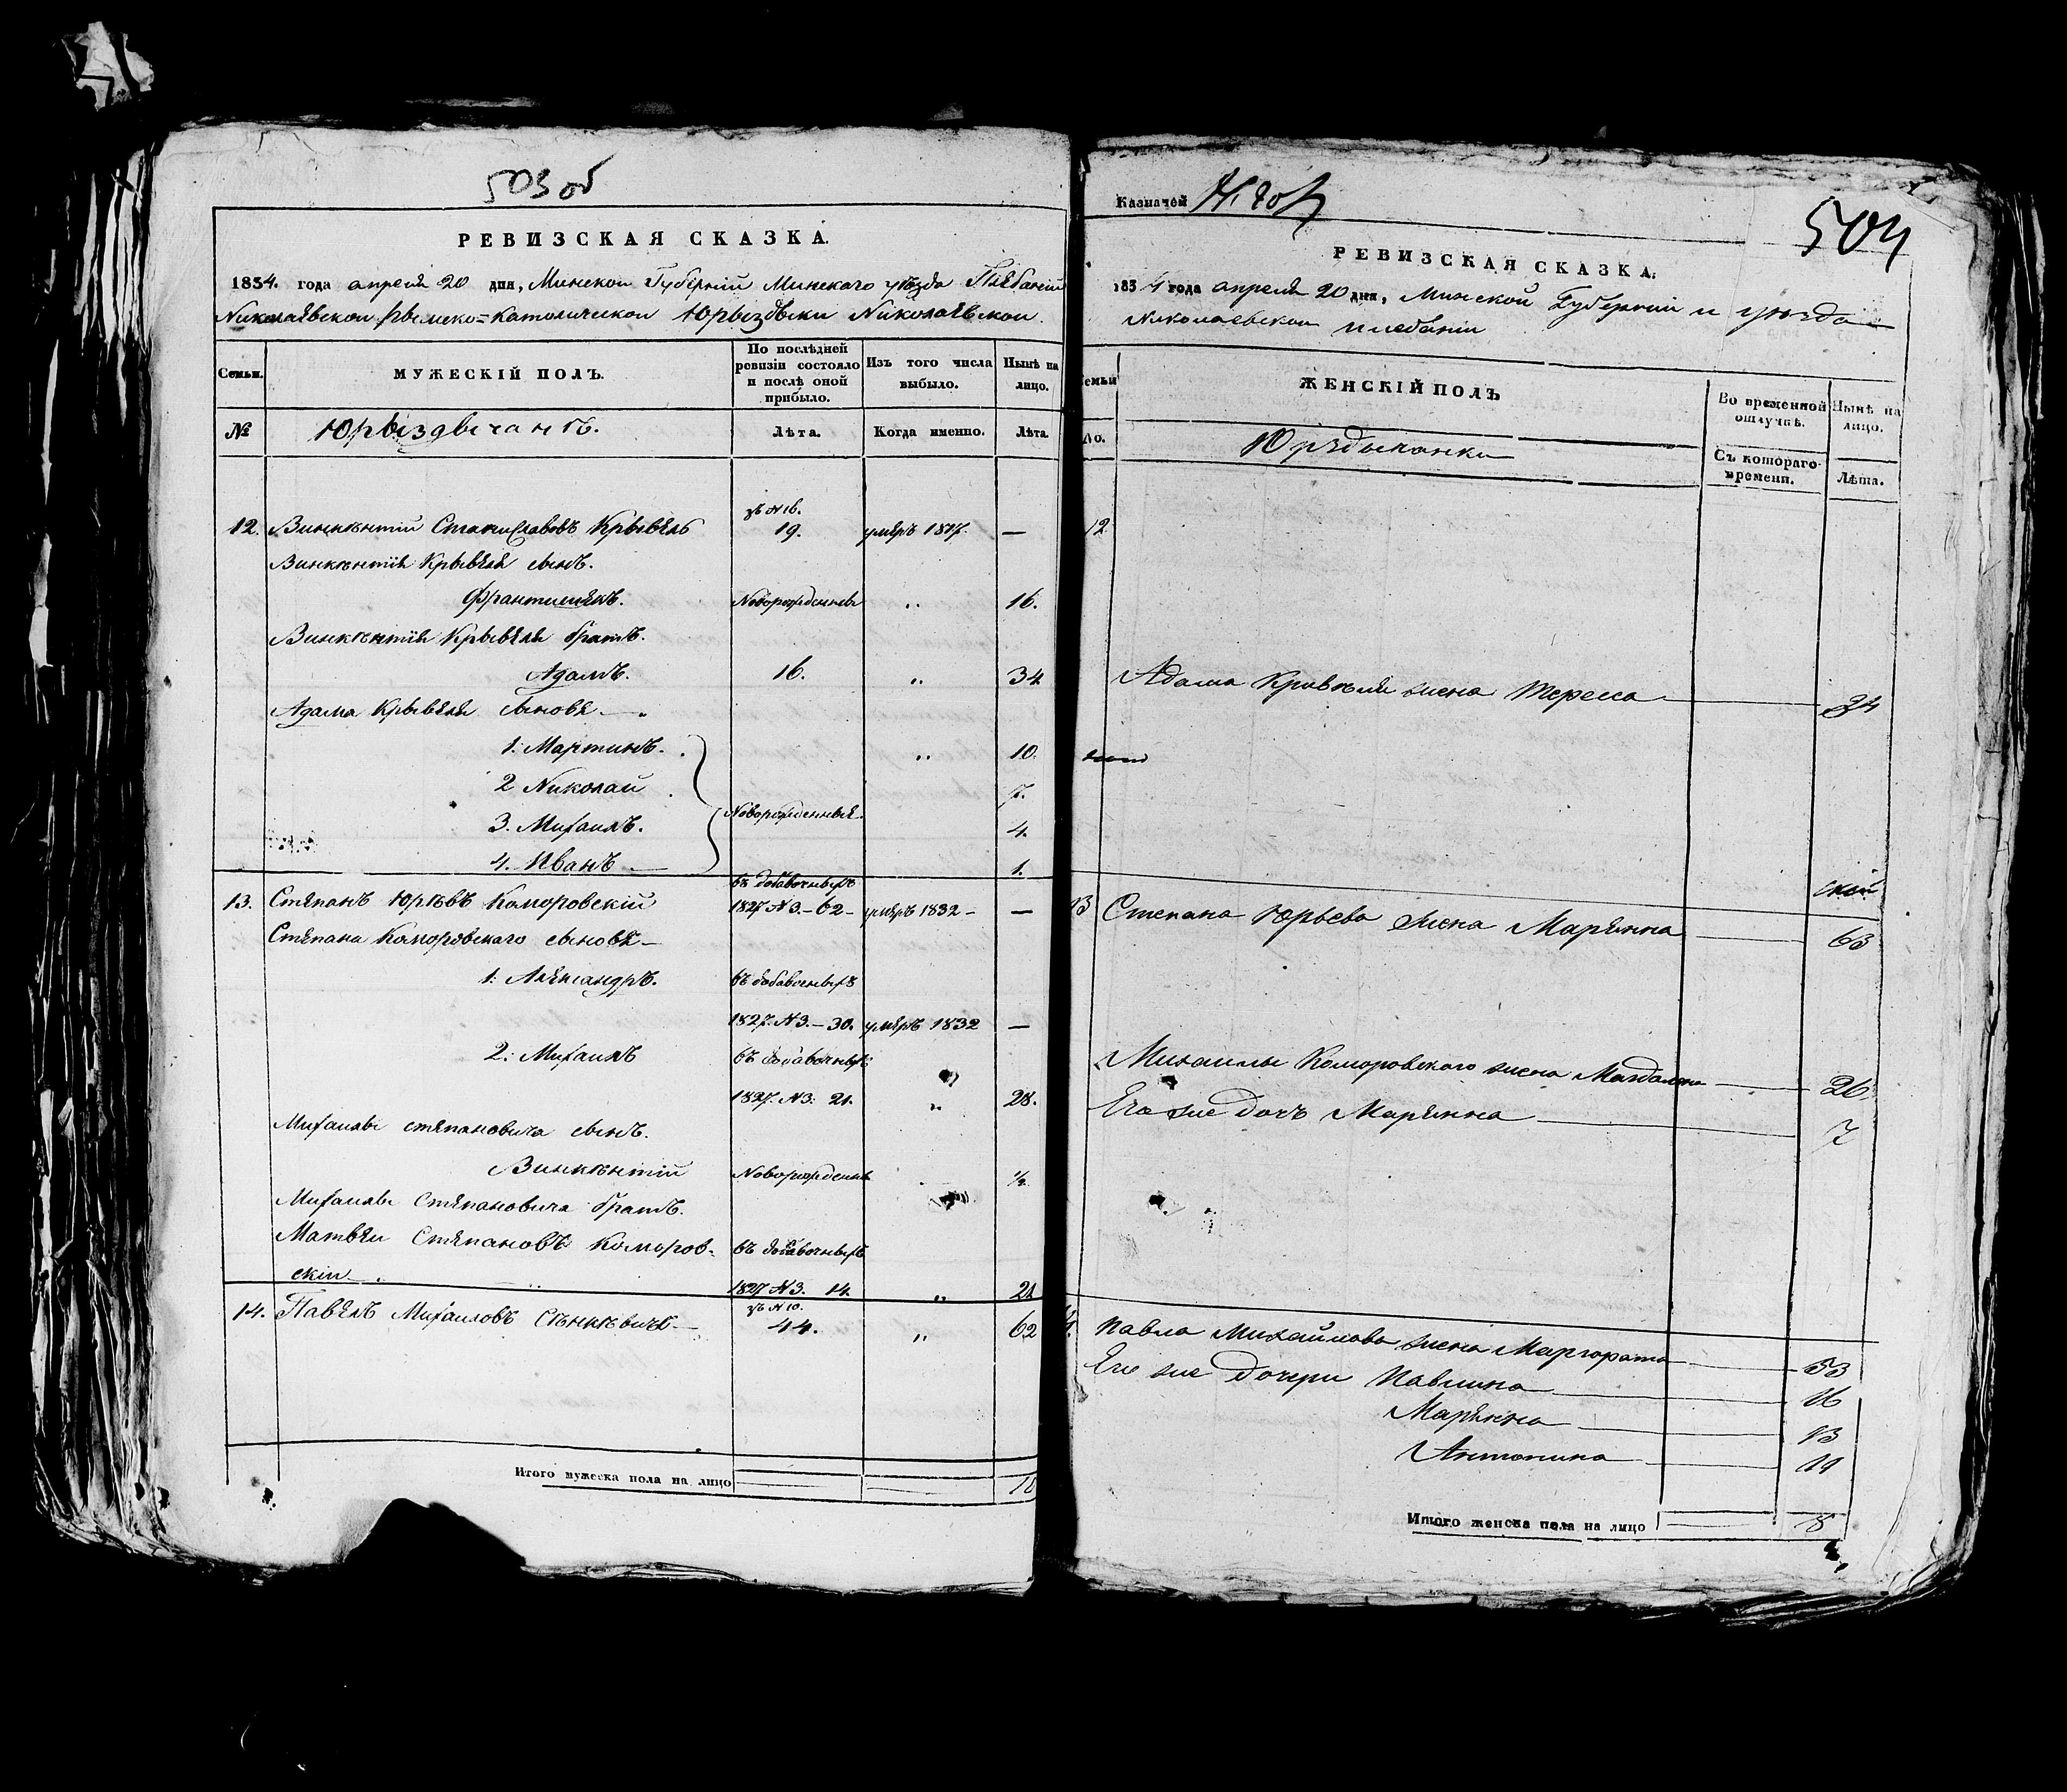 503 об
РЕВИЗСКАЯ СКАЗКА.
1834. года апреля 20 дня, Минской Губернiй Минскаго уѣзда Плебанiй
Николаевской Рымско=Католической Юрыздыки Николаевской.
Семьи.
МУЖЕСКІЙ ПОЛЪ.
По послѣдней ревизіи состояло и послѣ оной прибыло.
Изъ того числа выбыло.
Нынѣ на лицо.
№
Юрыздычанъ.
Лѣта.
Когда именно.
Лѣта.
12. Винкентiй Станиславовъ Крывель
зъ N 16.
19. умеръ 1817. —
Винкентiя Крывеля сынъ.
Францишекъ. Новорожденны „ 16.
Винкентiя Крывеля братъ.
Адамъ. 16. „ 34
Адама Крывеля сыновя —
1. Мартинъ. „ 10.
2 Николай 7.
3. Михаилъ. Новорожденныя. 4.
4. Иванъ — 1.
13. Степанъ Юрьевъ Коморовскiй
въ добавочныхъ
1827 N 3. – 62 – умеръ 1832 – —
Степана Коморовскаго сыновя —
1. Александръ. въ добавочныхъ
1827. N 3. – 30. умеръ 1832 —
2. Михаилъ въ добавочныхъ
1827. N 3. 21. „ 28.
Михаилы степановича сынъ.
Винкентiй Новорожденны ½
Михаилы Степановича братъ.
Матвеи Степановъ Коморов- въ добавочныхъ
скiи — 1827 N 3. 14. „ 21
14. Павелъ Михаиловъ Сенкевичъ —
зъ N 10.
44. „ 62
Итого мужеска пола на лицо
10
Казначей
504
РЕВИЗСКАЯ СКАЗКА.
1834 года апреля 20 дня, Минской Губернiи и уѣзда
Николаевской плебанiи
Семьи
ЖЕНСКІЙ ПОЛЪ
Во временной отлучкѣ.
Нынѣ на лицо.
No.
Юрздычанки
Съ котораго времени.
Лѣта.
12
Адама Кривеля жена Тересса — 34
13 Степана Юрьева жена Марянна — 63
Михаилы Коморовского жена Магдалена — 26.
Его же дочъ Марянна — 7
14. Павла Михайлова жена Маргората — 53
Его же дочери Павлина — 16
Марянна — 13
Антонина — 11
Итого женска пола на лицо 8